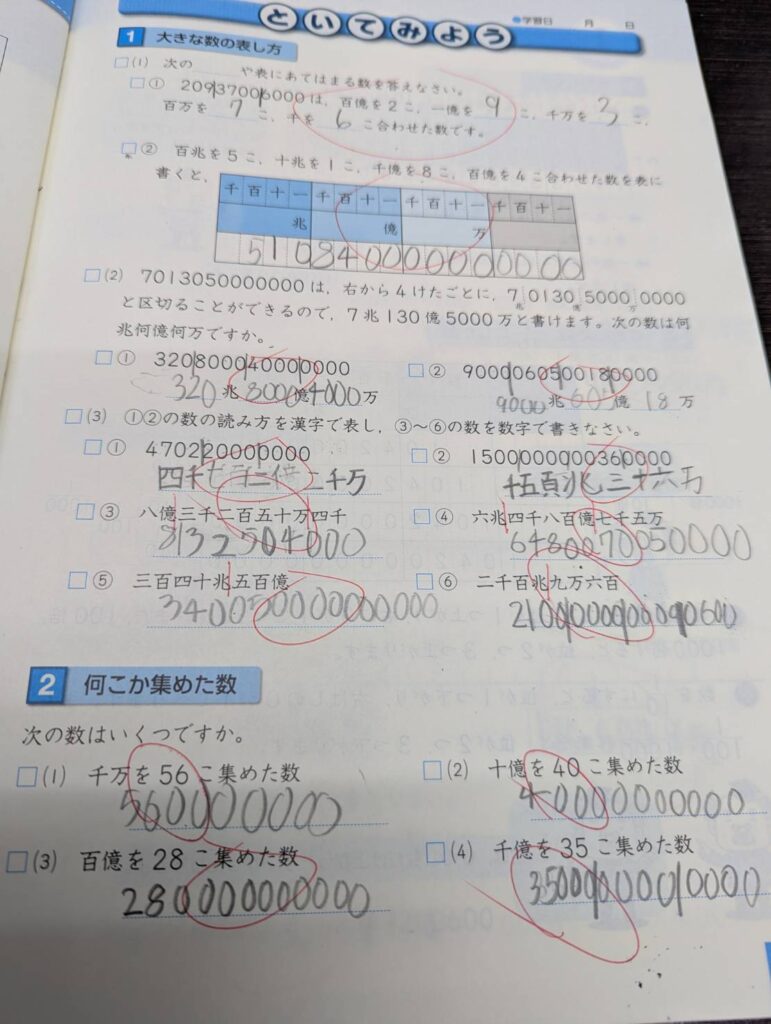 といてみよう
●学習日 月 日
1 大きな数の表し方
□(1) 次の や表にあてはまる数を答えなさい。
□① 209370060000は、百億を2こ、一億を 9 こ、千万を 3 こ、
百万を 7 こ、千を 6 こ合わせた数です。
□② 百兆を5こ、十兆を1こ、千億を8こ、百億を4こ合わせた数を表に
書くと、
千 百 十 一 千 百 十 一 千 百 十 一 千 百 十 一
兆 億 万
510840000000000
□(2) 7013050000000は、右から4けたごとに、7兆0130億5000万0000
と区切ることができるので、7兆130億5000万と書けます。次の数は何
兆何億何万ですか。
□① 320|8000|4000|0000 □② 9000|0605|0018|0000
320 兆 8000 億 4000 万 9000 兆 605 億 18 万
□(3) ①②の数の読み方を漢字で表し、③〜⑥の数を数字で書きなさい。
□① 4702|2000|0000 □② 1500|0000|0036|0000
四千七百二億二千万 千五百兆三十六万
□③ 八億三千二百五十万四千 □④ 六兆四千八百億七千五万
832504000 6480070050000
□⑤ 三百四十兆五百億 □⑥ 二千百兆九万六百
2100|0000|0009|0600
2 何こか集めた数
次の数はいくつですか。
□(1) 千万を56こ集めた数 □(2) 十億を40こ集めた数
560000000 40000000000
□(3) 百億を28こ集めた数 □(4) 千億を35こ集めた数
280000000000 35000|0000|0000